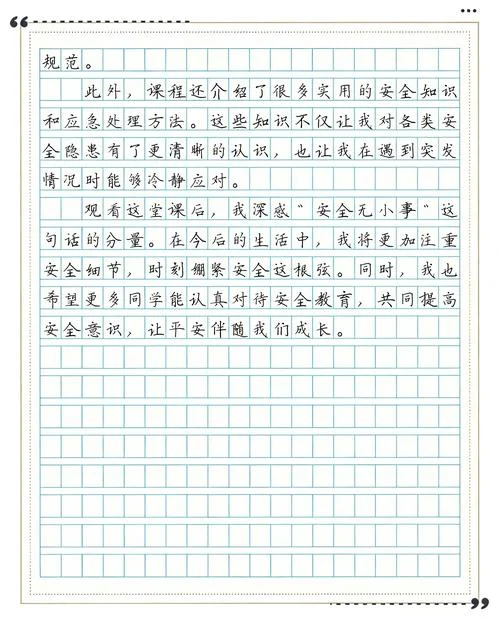 规范。
此外，课程还介绍了很多实用的安全知识
和应急处理方法。这些知识不仅让我对各类安
全隐患有了更清晰的认识，也让我在遇到突发
情况时能够冷静应对。
观看这堂课后，我深感“安全无小事”这
句话的分量。在今后的生活中，我将更加注重
安全细节，时刻绷紧安全这根弦。同时，我也
希望更多同学能认真对待安全教育，共同提高
安全意识，让平安伴随我们成长。